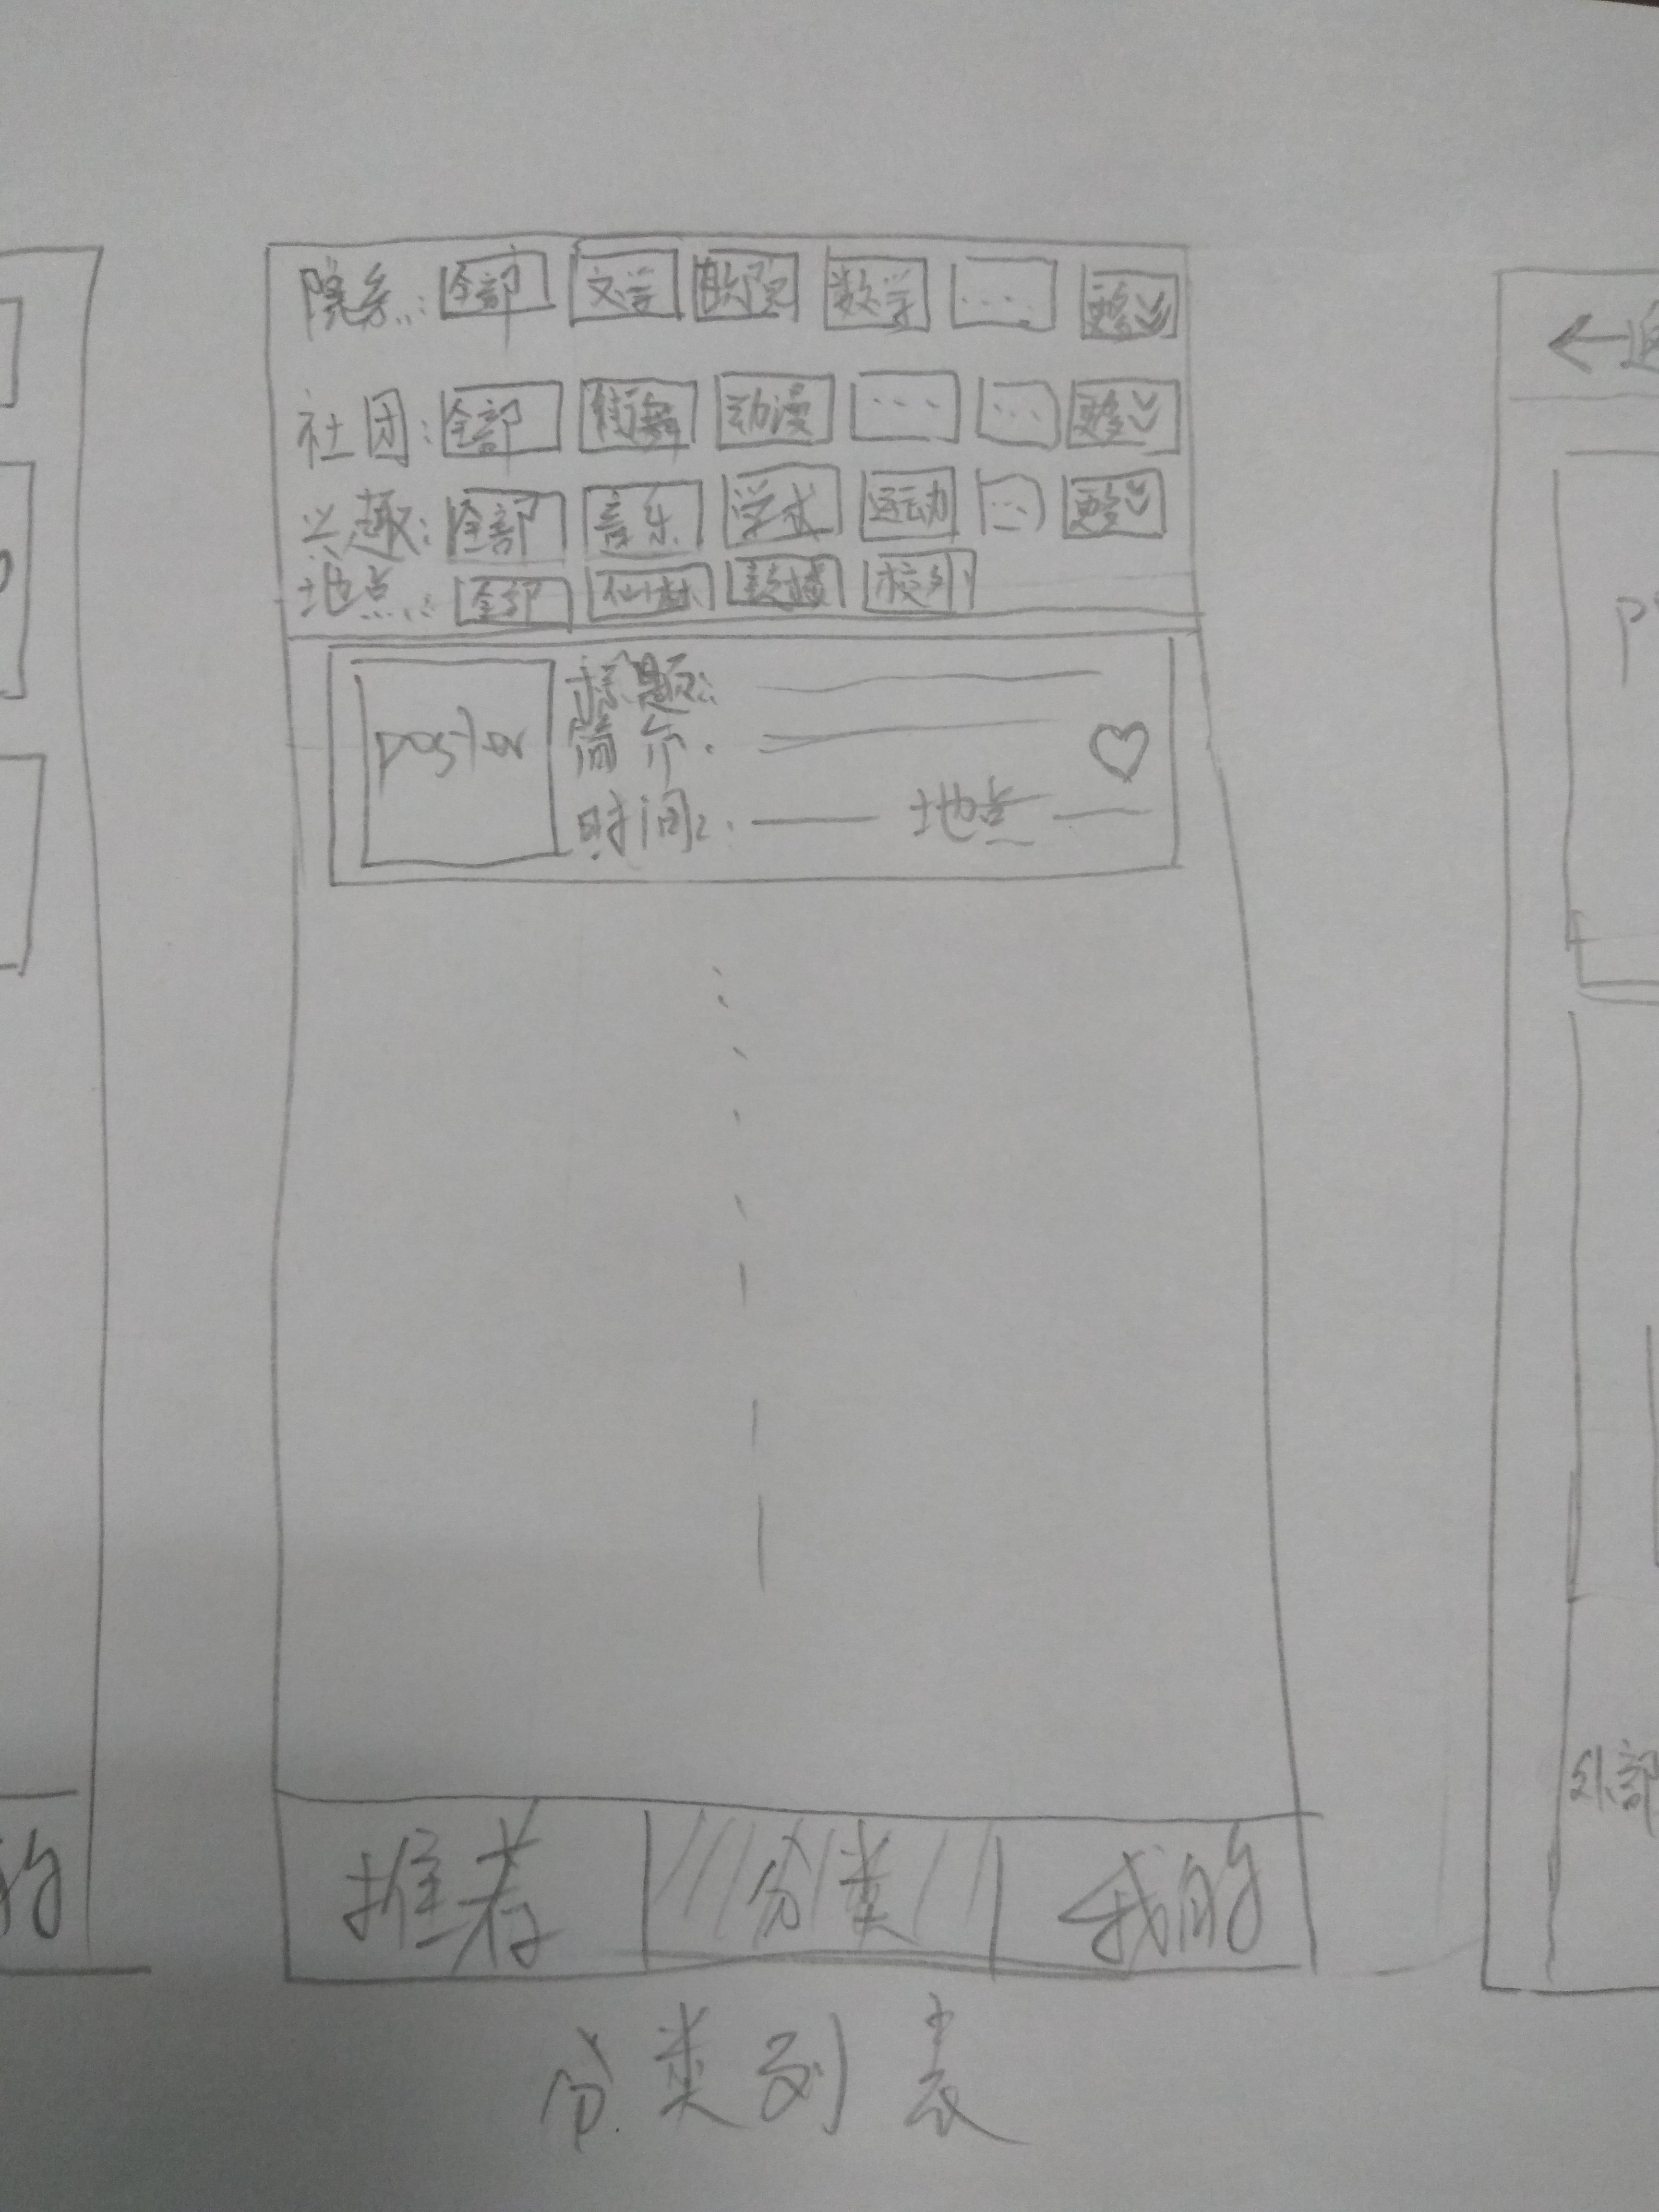 院系: 全部 文学 数学 .... 更多
社团: 全部 街舞 动漫 ... ... 更多
兴趣: 全部 音乐 学术 运动 ... 更多
地点: 全部 仙林 鼓楼 校外
poster
标题:
简介:
时间: 地点
推荐 分类 我的
分类列表
的
←返
P
外部